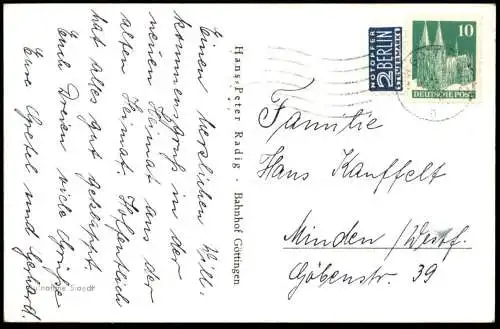 Einen herzlichen Will-
kommensgruß in der
neuen Heimat aus der
alten Heimat. Hoffentlich
hat alles gut geklappt.
Euch Dreien viele Grüße
Eure Gretel und Gerhard.
Hans-Peter Radig · Bahnhof Göttingen
NOTOPFER
2 BERLIN
STEUERMARKE
10
DEUTSCHE POST
Familie
Hans Kauffelt
Minden/Westf.
Göbenstr. 39